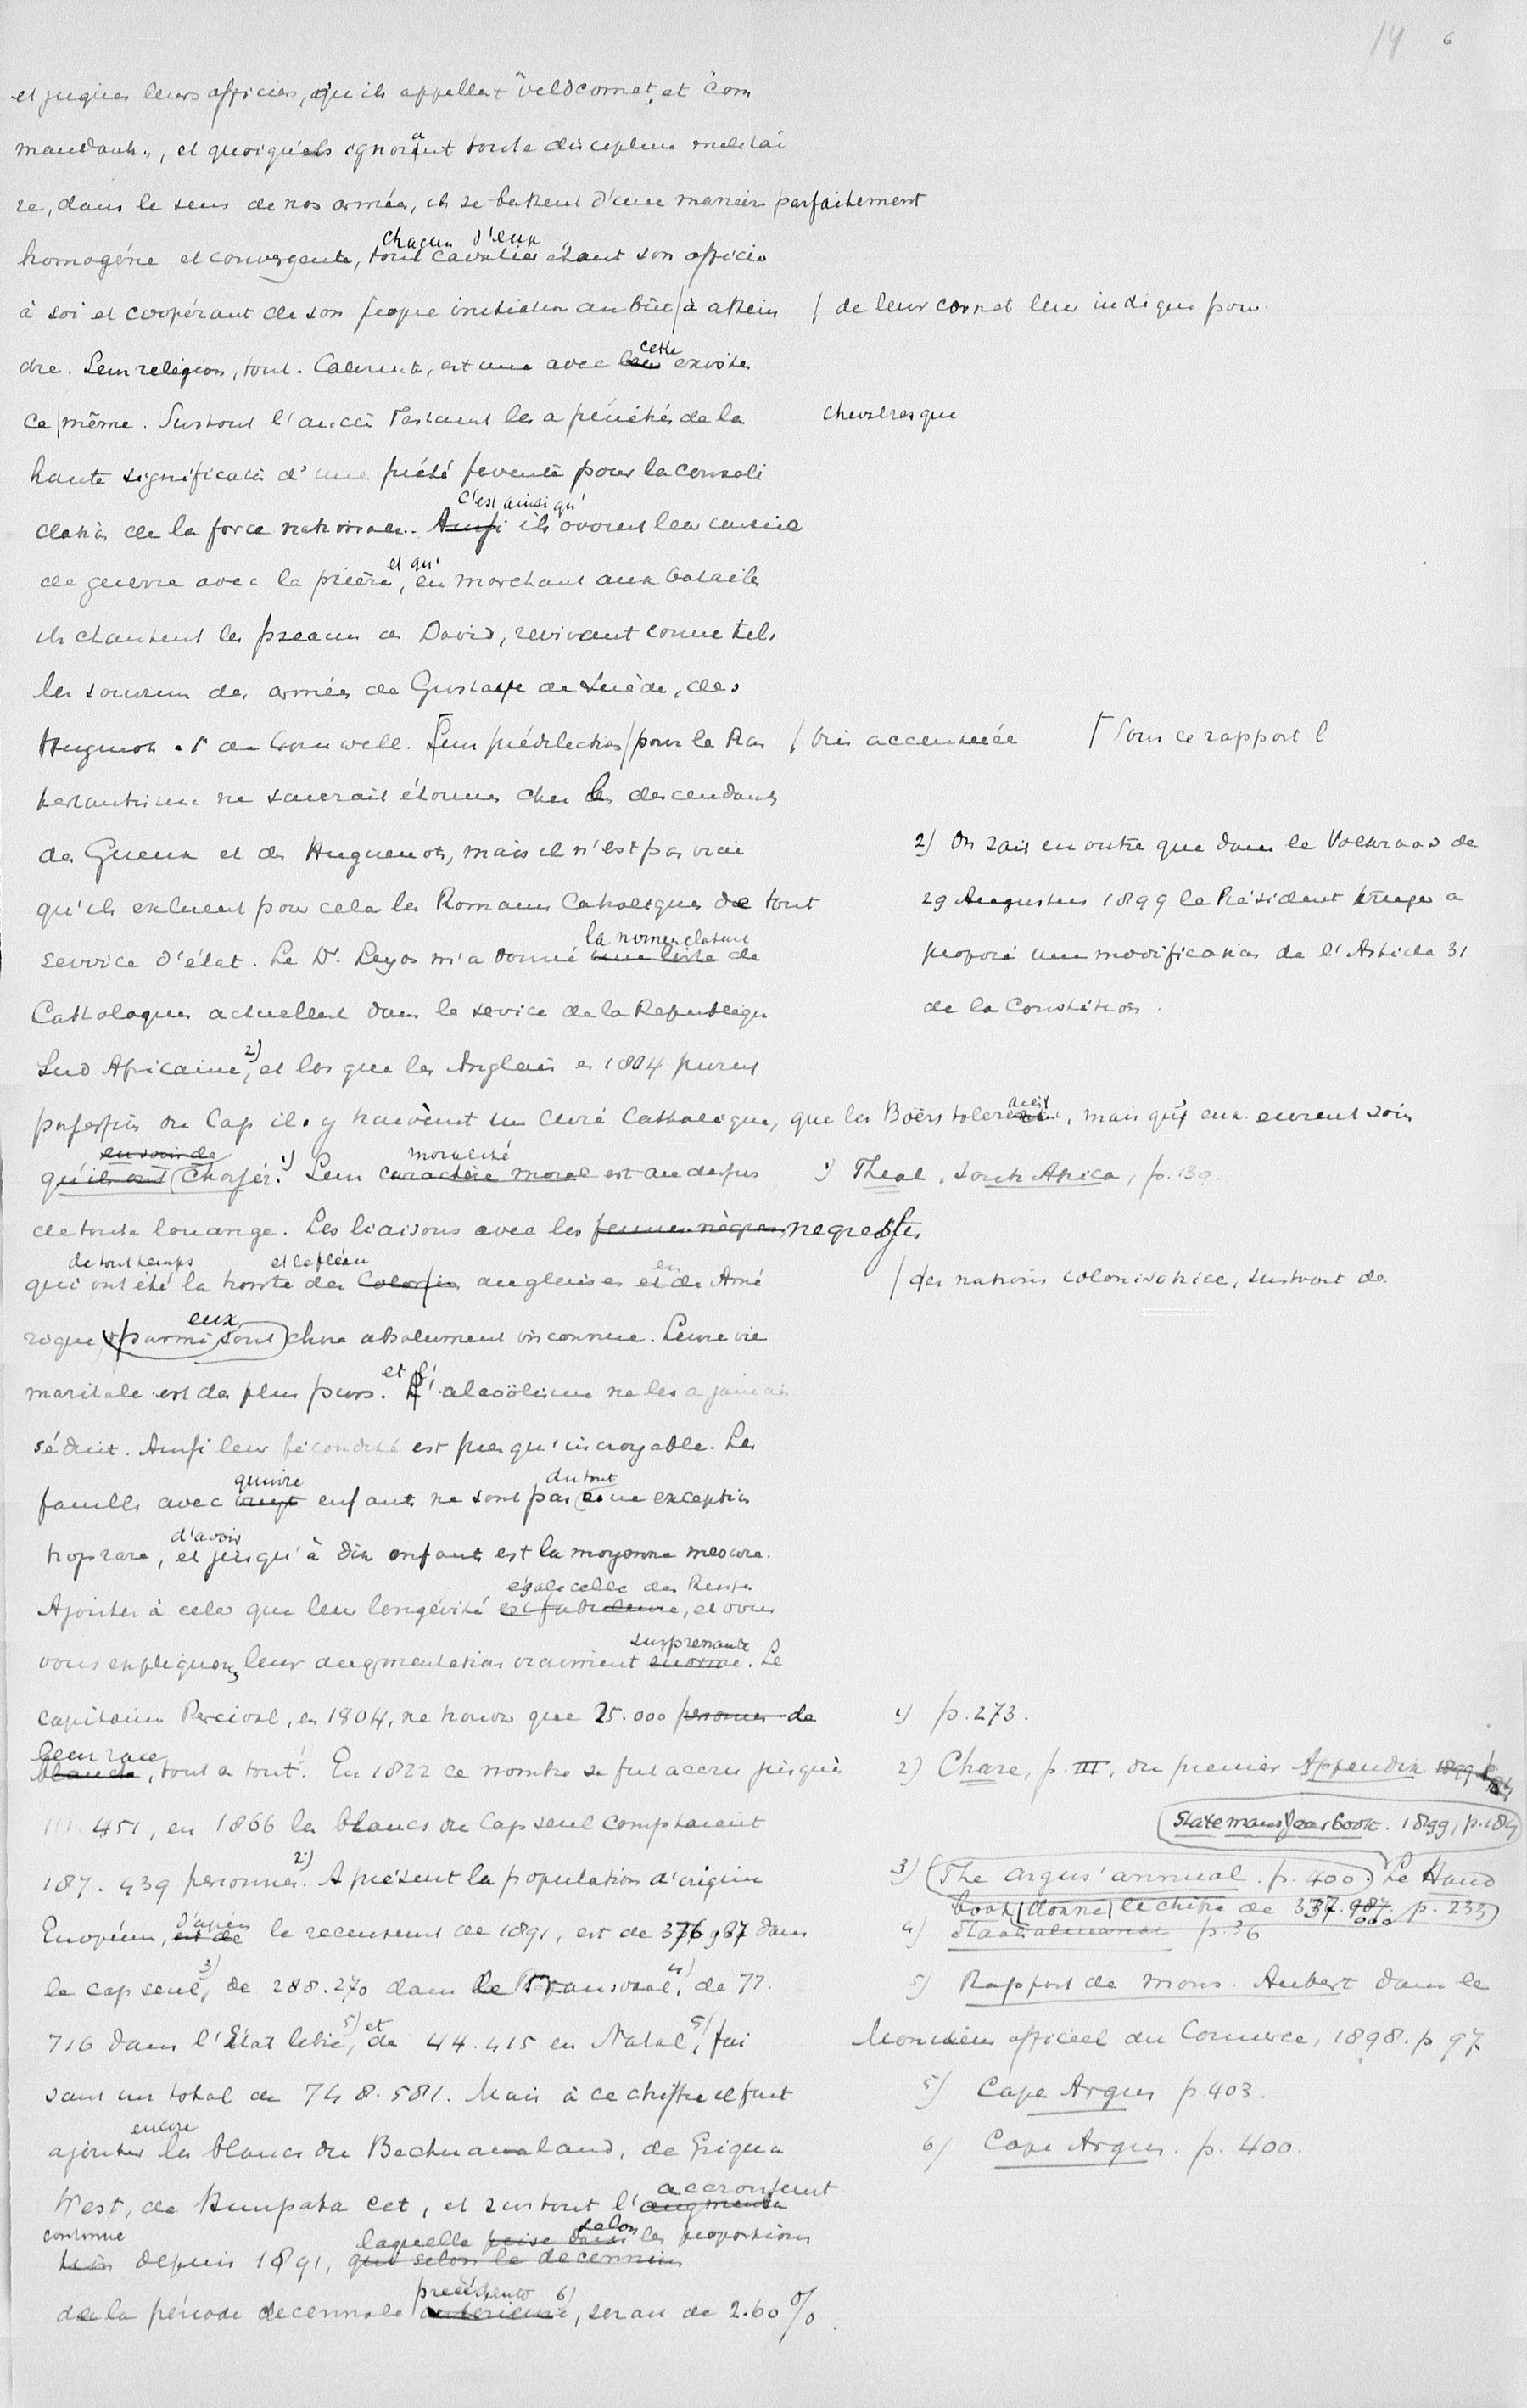 14 6
et jugées leurs officiers, qu'ils appellent "veldcornet" et "com
mandants", et quoiqu'ils ignorant toute discipline militai
re, dans le sens de nos armées, ils se battent d'une manière parfaitement
chacun d'eux
homogène et convergente, tout cavalier étant son officier
à soi et coopérant de son propre initiation au bût / à attein
/ de leur cornet leur indique pour
dre. Leur religion, tout. Calviniste, est une avec leur cette existen
ce / même. Surtout l'ancien Testament les a pénétrés de la
chevalresque
haute signification d'une piété fervente pour la consoli
c'est ainsi qu'
dation de la force nationale. Aussi ils ouvrent leur conseil
et qu'
de guerre avec la prière, en marchant aux batailles
ils chantent les pseaumes de David, revivant comme tels
les souvenirs des armées de Gustave de Suède, des
Huguenots et de Cromwell. Leur prédilection / pour le Pro
/ très accentuée
Sous ce rapport l
testantisme ne saurait étonner chez les descendants
des Gueux et des Huguenots, mais il n'est pas vrai
qu'ils excluent pour cela les Romains Catholiques de tout
la nomenclature
service d'état. Le Dr. Leyds m'a donné une liste de
Catholiques actuellent dans le service de la Republique
Sud Africaine, 2) et lorsque les Anglais en 1804 purent
2) On sait en outre que dans le Volksraad de
29 Augustus 1899 le Président Kruger a
proposé une modification de l'Article 31
de la Constitution.
du Cap ils y trouvèrent un Curé Catholique, que les Boërs toleraient, mais qu'eux eurent soin
en soin de
qu'ils ont chasser. 1) Leur caractère moral moralité est au dessus
1) Theal, South Africa, p. 139.
de toute louange. Les liaisons avec les femmes nègres negresses
de tout temps et le fléau
qui ont été la honte des Colonies anglaises et en de Amé
/ des nations colonisatrice, surtout de
rique, parmi eux sont chose absolument inconnue. Leure vie
maritale est des plus pures. et l'alcoölisme ne les a jamais
séduit. Aussi leur fécondité est presqu'incroyable. Les
quinze du tout
familles avec vingt enfants ne sont pas une exception
d'avoir
trop rare, et jusqu'à dix enfants est la moyenne mesure.
égale celle des Russes
Ajoutez à cela que leur longévité est fabuleuse, et vous
surprenante
vous expliquez leur augmentation vraiment enorme. Le
capitaine Percival, en 1804, ne trouva que 25.000 personnes de
1) p. 273.
leur race
blanche, tout à tout. 1) En 1822 ce nombre se fut accru jusqu'à
2) Chare, p. III, du premier Appendix 1899
111.451, en 1866 les blancs du Cap seul comptaient
Statemans Yearbook. 1899, p. 184
187.439 personnes. 2) A présent la population d'origine
3) The Argus' annual. p. 400. Le Hand
book donne le chifre de 337.987. 000 p. 233
Européen, est de d'après le recensement de 1891, est de 376 987 dans
4) Staatsalmanak p. 36
le cap seul, 3) de 288.270 dans le Transvaal, 4) de 77.
5) Rapport de Mons. Aubert dans le
Moniteur officiel du Commerce, 1898. p 97
716 dans l'État libre, 5) et de 44.415 en Natal, 5) fai
sant un total de 748.581. Mais à ce chiffre il faut
5) Cape Argus p. 403.
encore
ajouter les blancs du Bechuanaland, de Griqua
6) Cape Argus. p. 400.
accroissent
West, de cet, et surtout l'augmenta
continue laquelle selon les proportions
tion depuis 1891, qui selon le decennium
précédente 6)
de la période decennale anterieure, serait de 2.60 %